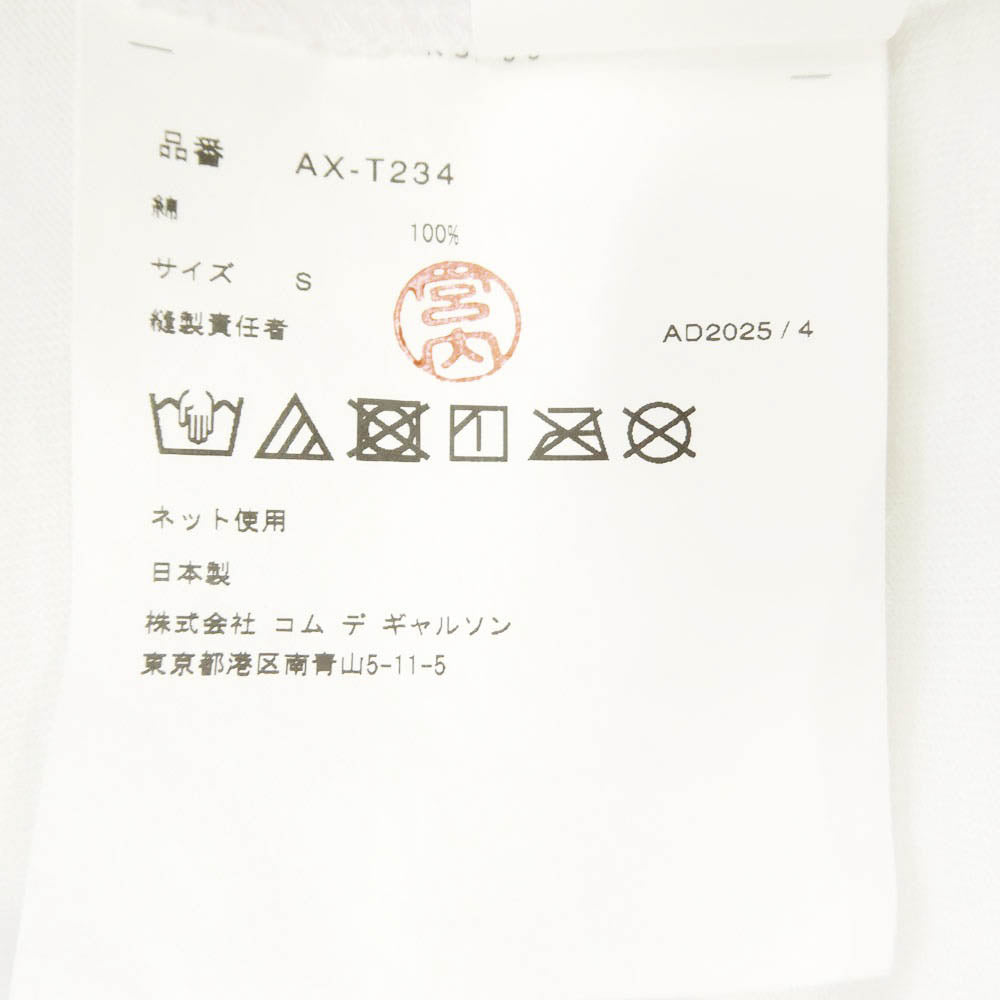 品番 AX-T234
綿 100%
サイズ S
縫製責任者 宮内 AD2025 / 4
ネット使用
日本製
株式会社 コム デ ギャルソン
東京都港区南青山5-11-5